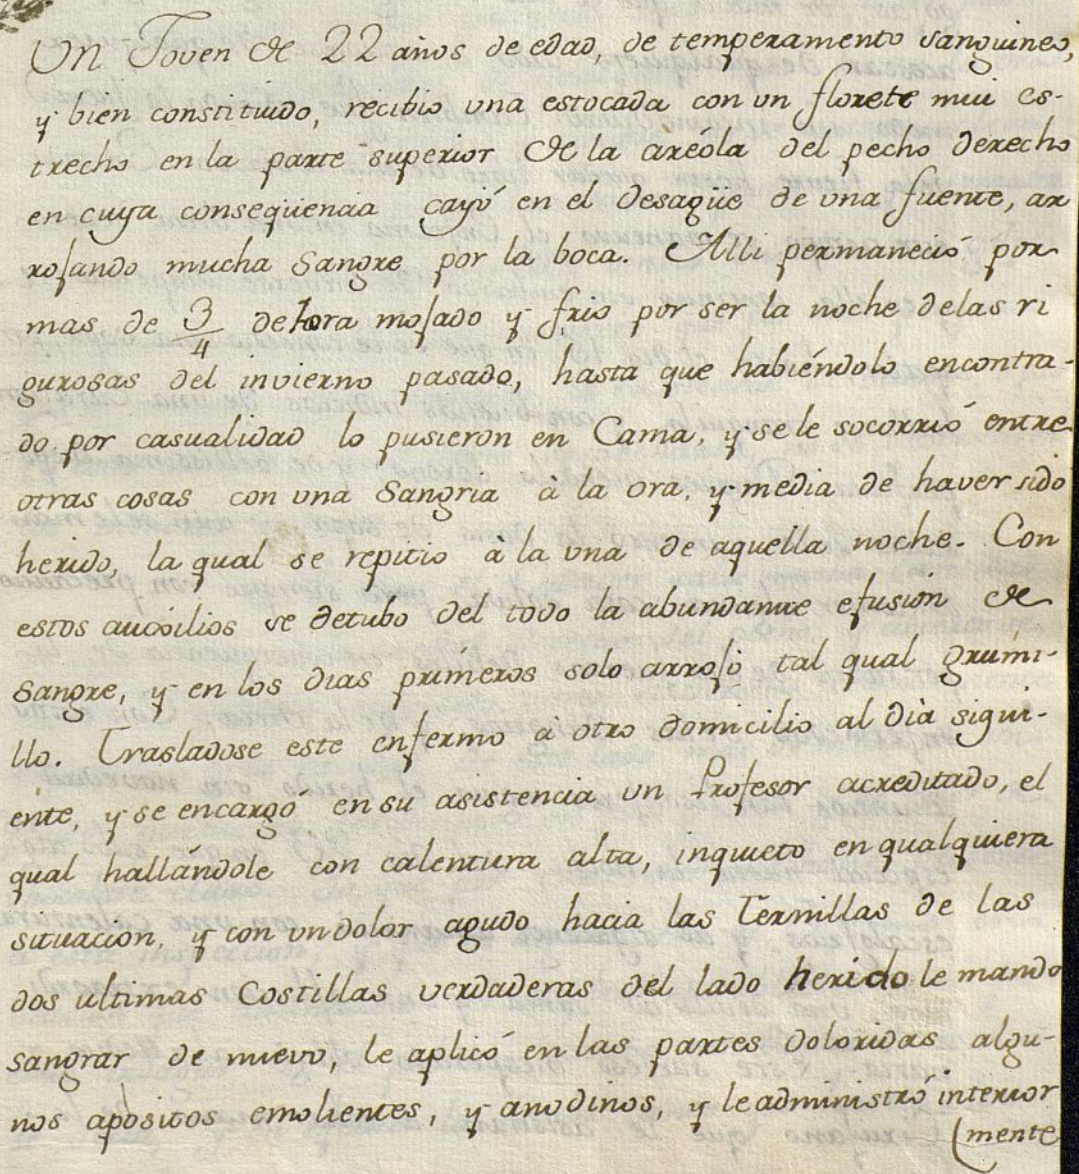 Un Joven de 22 años de edad, de temperamento sanguineo,
y bien constituido, recibió una estocada con un florete mui es-
trecho en la parte superior de la aréola del pecho derecho
en cuya conseqüencia cayó en el desagüe de una fuente, ar
rojando mucha Sangre por la boca. Alli permaneció por
mas de 3/4 de hora mojado y frio por ser la noche delas ri
gurosas del invierno pasado, hasta que habiéndolo encontra-
do por casualidad lo pusieron en Cama, y se le socorrió entre
otras cosas con una Sangria à la ora, y media de haver sido
herido, la qual se repitio à la una de aquella noche. Con
estos auxilios se detubo del todo la abundante efusión de
Sangre, y en los dias priméros solo arrojó tal qual grumi-
llo. Trasladose este enfermo a otro domicilio al dia sigui-
ente, y se encargó en su asistencia un Profesor acreditado, el
qual hallándole con calentura alta, inquieto en qualquiera
situacion, y con un dolor agudo hacia las Ternillas de las
dos ultimas Costillas verdaderas del lado herido le mandó
sangrar de nuevo, le aplicó en las partes doloridas algu-
nos apòsitos emolientes, y anodinos, y le administró interior
(mente